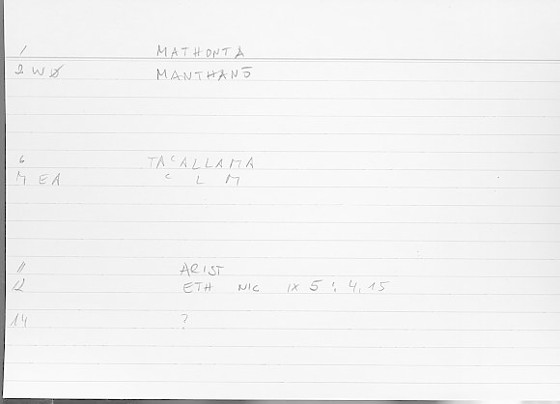 1 MATHONTA
2 WØ MANTHANŌ
6 TACALLAMA
M EA C L M
11 ARIST
12 ETH NIC IX 5; 4, 15
14 ?